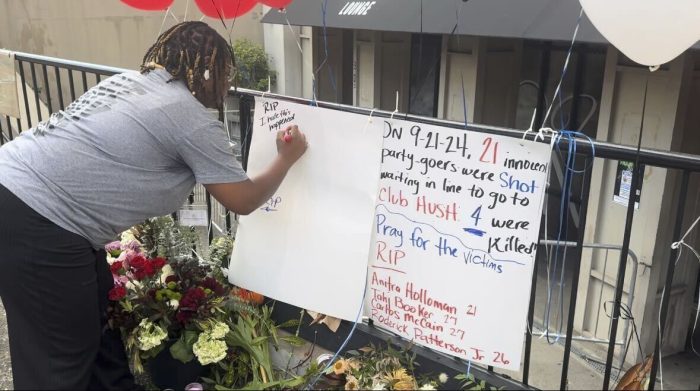 LOUNGE
RIP
I hate this
happened
RIP
On 9-21-24, 21 innocent
party-goers were Shot
waiting in line to go to
Club HUSH. 4 were
Killed!
Pray for the victims
RIP
Anitra Holloman 21
Tahj Booker 27
Carlos McCain 27
Roderick Patterson Jr 26